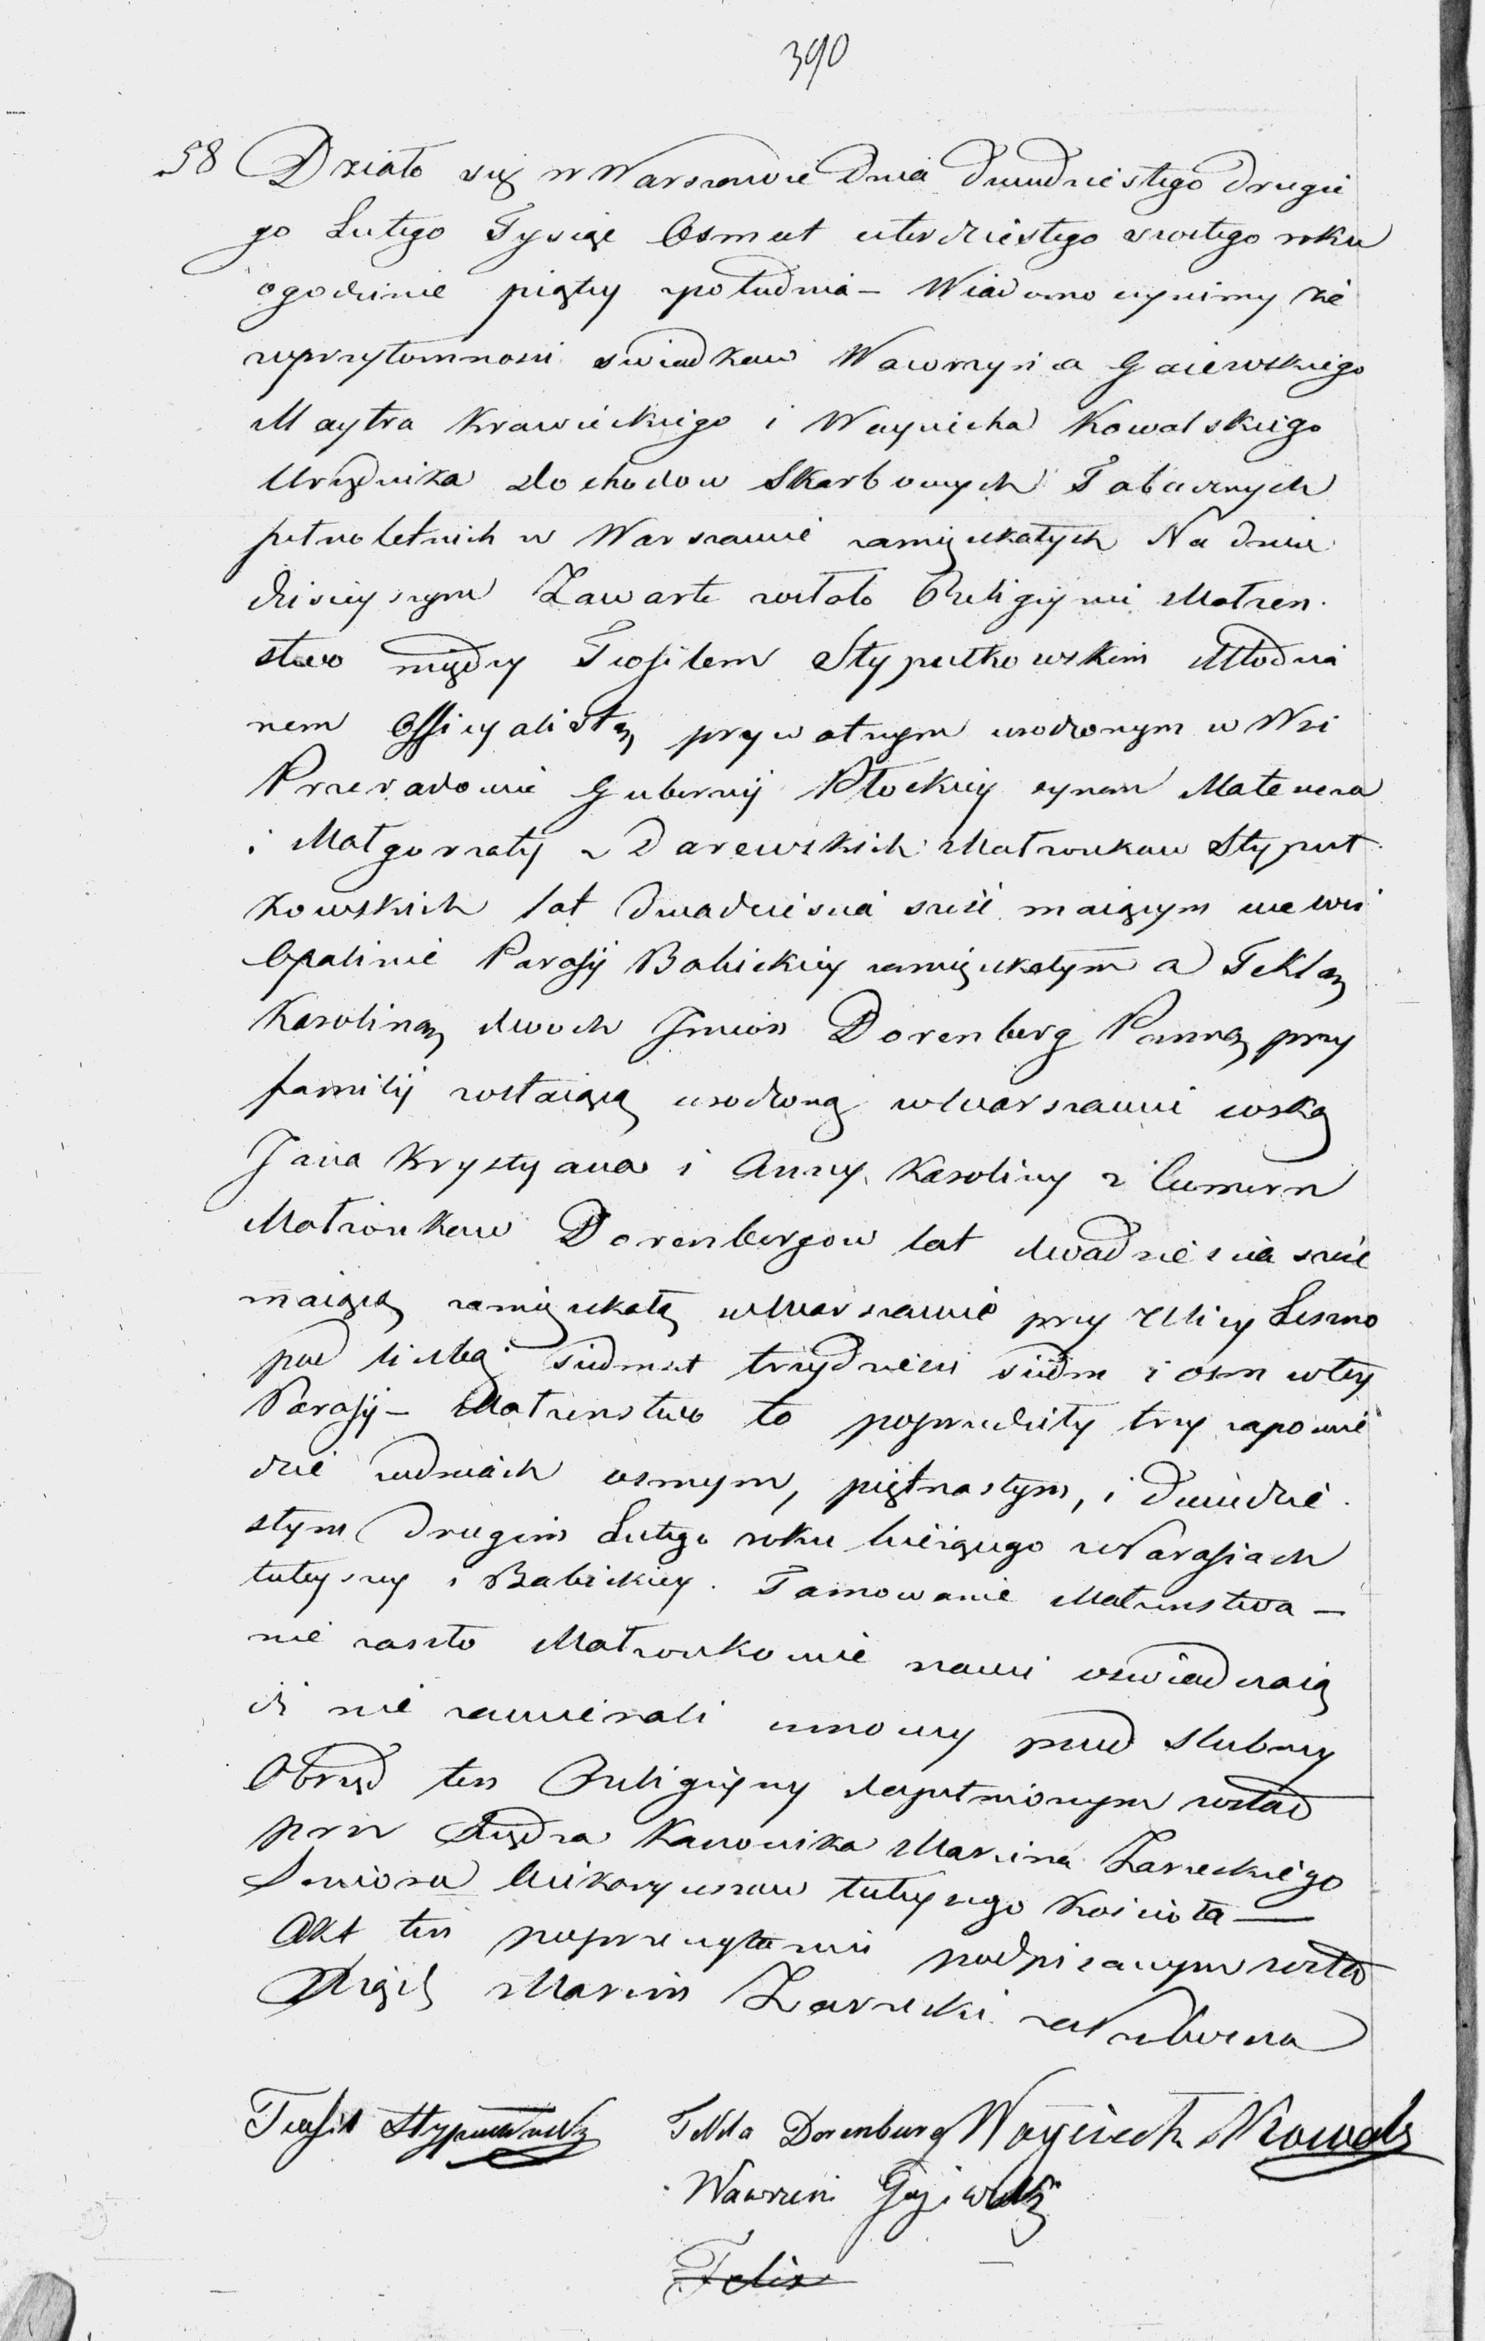 390
58 Działo się w Warszawie Dnia Dwudziestego Drugie
go Lutego Tysiąc Osmset czterdziestego szostego roku
o godzinie piątey z południa – Wiadomo czynimy że
w przytomnosci swiadkow Wawrzynca Gaiewskiego
Maytra Krawieckiego i Woyciecha Kowalskiego
Urzędnika dochodow Skarbowych Tabacznych
pełnoletnich w Warszawie zamięszkałych Na dniu
dzisieyszym Zawarte zostało Religiyne Małżen
stwo między Teofilem Stypułkowskim Młodzia
nem Officyalistą prywatnym urodzonym w Wsi
Przeradowie Gubernij Płockiey synem Mateusza
i Małgorzaty z Darewskich Małżonkow Stypuł
kowskich lat dwadziescia szesć maiącym we wsi
Opalinie Parafij Babickiey zamięszkałym a Teklą
Karoliną dwoch Jmion Dorenberg Panną przy
familij zostaiącą urodzoną w Warszawie corką
Jana Krystyana i Anny Karoliny z
Małżonkow Dorenbergow lat dwadziescia szesć
maiącą zamięszkałą w Warszawie przy Ulicy Leszno
pod liczbą siedmset trzydziesci siedm i osm w tey
Parafij – Małżenstwo to poprzedziły trzy zapowie
dzie w dniach osmym, piętnastym, i dwudzie
stym drugim Lutego roku bieżącego w Parafiach
tuteyszey i Babickiey. Tamowanie Małżenstwa –
nie zaszło Małżonkowie nowi oswiadczaią
iż nie zawierali umowy przed slubney
Obrząd ten Religiyny dopełnionym został
przez Xiędza Kanonika Marcina Zarzeckiego
Seniora Wikaryuszow tuteyszego Kościoła —
Akt ten po przeczytaniu podpisanym został
Xiądz Marcin Zarzecki za Proboszcza
Teofil Stypułkowski Tekla Dorenberg Woyciech Kowals
Wawrzeni Gajewski
Felix